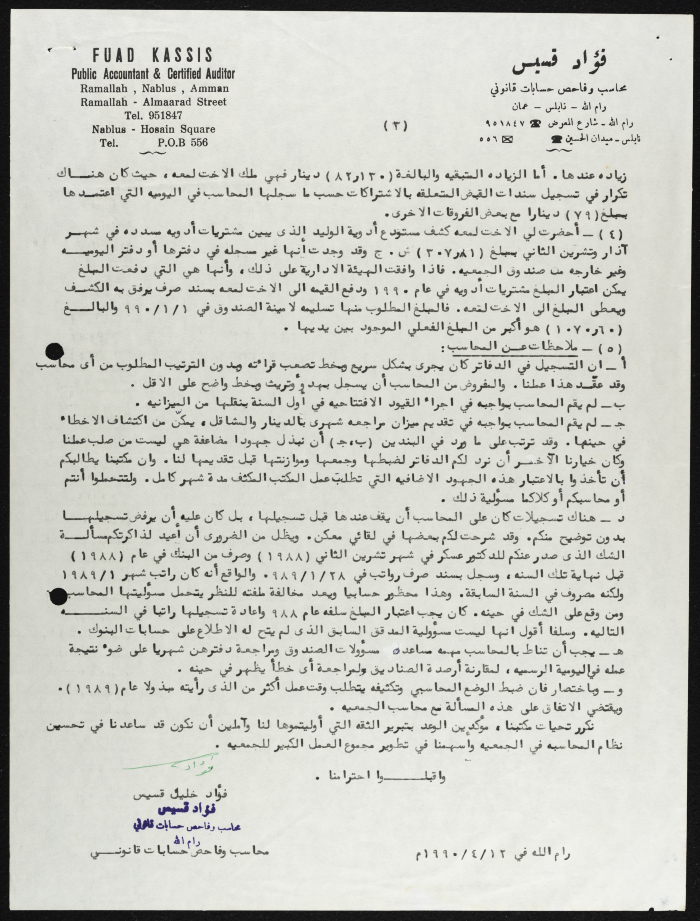 FUAD KASSIS
Public Accountant & Certified Auditor
Ramallah , Nablus , Amman
Ramallah - Almaarad Street
Tel. 951847
Nablus - Hosain Square
Tel. P.O.B 556
فؤاد قسيس
محاسب وفاحص حسابات قانوني
رام الله - نابلس - عمان
رام الله - شارع المعرض ☎ ٩٥١٨٤٧
نابلس - ميدان الحسين ☎ ✉ ٥٥٦
(٣)
زياده عندها . أما الزياده المتبقيه والبالغة (٨٢٫١٣٠) دينار فهي ملك الاخت لمعه ، حيث كان هناك
تكرار في تسجيل سندات القبض المتعلقه بالاشتراكات حسب ما سجلها المحاسب في اليوميه التي اعتمدها
بمبلغ (٧٩) دينارا مع بعض الفروقات الاخرى.
(٤) ـ أحضرت لي الاخت لمعه كشف مستودع أدوية الوليد الذى يبين مشتريات أدويه مسدده في شهر
آذار وتشرين الثاني بمبلغ (٣٠٧٫٨١) ش . ج وقد وجدت انها غير مسجله في دفترها أو دفتر اليوميه
وغير خارجه من صندوق الجمعيه . فاذا وافقت الهيئة الادارية على ذلك ، وأنها هي التي دفعت المبلغ
يمكن اعتبار المبلغ مشتريات أدويه في عام ١٩٩٠ ودفع القيمه الى الاخت لمعه بسند صرف يرفق به الكشف
ويعطى المبلغ الى الاخت لمعه . فالمبلغ المطلوب منها تسليمه لامينة الصندوق في ٩٩٠/١/١ والبالغ
(١٠٧٠٫٦٠) هو أكبر من المبلغ الفعلي الموجود بين يديها .
(٥) ـ ملاحظات عن المحاسب :
أ ـ ان التسجيل في الدفاتر كان يجرى بشكل سريع وبخط تصعب قراءته وبدون الترتيب المطلوب من أى محاسب
وقد عقّد هذا عملنا . والمفروض من المحاسب أن يسجل بهدوء وتريث وبخط واضح على الاقل .
ب ـ لم يقم المحاسب بواجبه في اجراء القيود الافتتاحيه في أول السنة بنقلها من الميزانيه .
جـ ـ لم يقم المحاسب بواجبه في تقديم ميزان مراجعه شهرى بالدينار والشاقل ، يمكّن من اكتشاف الاخطاء
في حينها . وقد ترتب على ما ورد في البندين (ب،جـ) أن نبذل جهودا مضاعفة هي ليست من صلب عملنا
وكان خيارنا الآخر أن نرد لكم الدفاتر لضبطها وجمعها وموازنتها قبل تقديمها لنا . وان مكتبنا يطالبكم
أن تأخذوا بالاعتبار هذه الجهود الاضافيه التي تطلبت عمل المكتب المكثف مدة شهر كامل . ولتتحملوا أنتم
أو محاسبكم أو كلاكما مسؤلية ذلك .
د ـ هناك تسجيلات كان على المحاسب أن يقف عندها قبل تسجيلها ، بل كان عليه أن يرفض تسجيلها
بدون توضيح منكم . وقد شرحت لكم بعضها في لقائي معكن . ويظل من الضرورى أن أعيد لذاكرتكم مسألة
الشك الذى صدر عنكم للدكتور عسكر في شهر تشرين الثاني (١٩٨٨) وصرف من البنك في عام (١٩٨٨)
قبل نهاية تلك السنه ، وسجل بسند صرف رواتب في ٩٨٩/١/٢٨ . والواقع أنه كان راتب شهر ١٩٨٩/١
ولكنه مصروف في السنة السابقة . وهذا محظور حسابيا ويعد مخالفة ملفته للنظر يتحمل مسؤليتها المحاسب
ومن وقع على الشك في حينه . كان يجب اعتبار المبلغ سلفه عام ٩٨٨ واعادة تسجيلها راتبا في السنه
التاليه . وسلفا أقول انها ليست مسؤولية المدقق السابق الذى لم يتح له الاطلاع على حسابات البنوك .
هـ ـ يجب أن تناط بالمحاسب مهمه مساعدة مسؤولات الصندوق ومراجعة دفترهن شهريا على ضوء نتيجة
عمله في اليومية الرسميه ، لمقارنة أرصدة الصناديق ولمراجعة أى خطأ يظهر في حينه .
و ـ وباختصار فان ضبط الوضع المحاسبي وتكثيفه يتطلب وقت عمل أكثر من الذى رأيته مبذولا عام (١٩٨٩).
ويقتضي الاتفاق على هذه المسألة مع محاسب الجمعيه .
نكرر تحيات مكتبنا ، مؤكدين الوعد بتبرير الثقه التي أوليتموها لنا وآملين أن نكون قد ساعدنا في تحسين
نظام المحاسبه في الجمعيه وأسهمنا في تطوير مجموع العمل الكبير للجمعيه .
واقبلوا احترامنا .
فؤاد خليل قسيس
فؤاد قسيس
محاسب وفاحص حسابات قانوني
رام الله
محاسب وفاحص حسابات قانوني
رام الله في ١٩٩٠/٤/١٢م